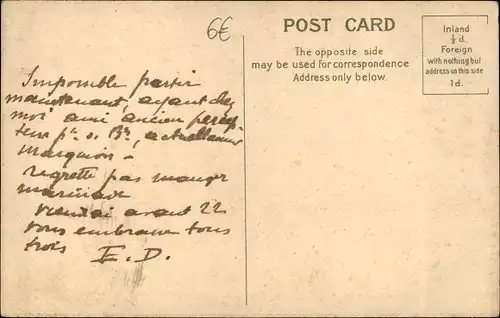 6€
POST CARD
The opposite side
may be used for correspondence
Address only below.
Inland
½d.
Foreign
with nothing but
address on this side
1d.
Impossible partir
maintenant, ayant chez
moi ami ancien percep
teur
Marquion -
regrette pas manger
marinade
viendai avant 22
vous embrasse tous
trois
E. D.